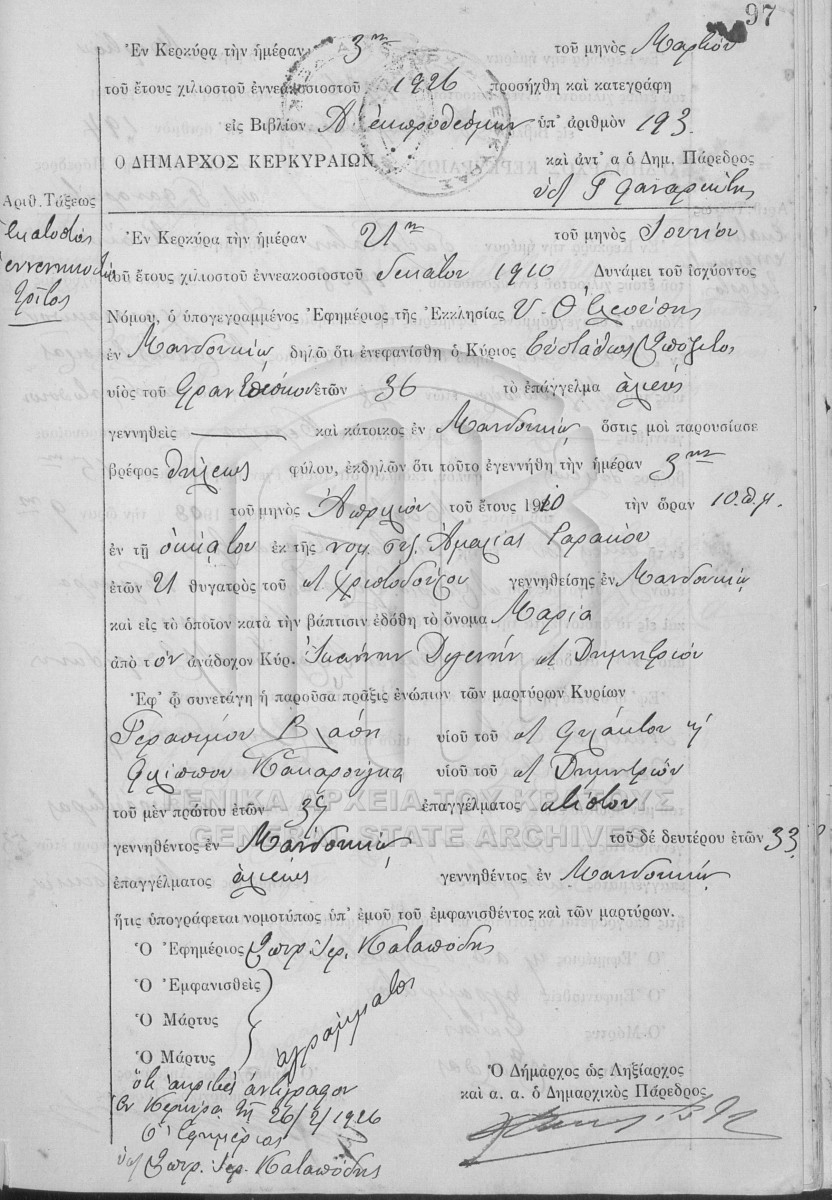 97
Ἐν Κερκύρᾳ τὴν ἡμέραν 3ην τοῦ μηνὸς Μαρτίου
τοῦ ἔτους χιλιοστοῦ ἐννεακοσιοστοῦ 1926 προσήχθη καὶ κατεγράφη
εἰς Βιβλίον Α ἐκπροθέσμων ὑπ' ἀριθμὸν 193
Ο ΔΗΜΑΡΧΟΣ ΚΕΡΚΥΡΑΙΩΝ καὶ ἀντ' α ὁ Δημ. Πάρεδρος
Ἀριθ. Τάξεως
ἑκατοστὸς
ἐννενηκοστὸς
τρίτος
Ἐν Κερκύρᾳ τὴν ἡμέραν 21ην τοῦ μηνὸς Ἰουνίου
τοῦ ἔτους χιλιοστοῦ ἐννεακοσιοστοῦ δεκάτου 1910 Δυνάμει τοῦ ἰσχύοντος
Νόμου, ὁ ὑπογεγραμμένος Ἐφημέριος τῆς Ἐκκλησίας Υ. Θ. Ἐλεούσης
ἐν Μανδουκίῳ δηλῶ ὅτι ἐνεφανίσθη ὁ Κύριος Εὐστάθιος
υἱὸς τοῦ Φραντζέσκου ἐτῶν 36 τὸ ἐπάγγελμα ἁλιεύς
γεννηθεὶς καὶ κάτοικος ἐν Μανδουκίῳ ὅστις μοὶ παρουσίασε
βρέφος θήλεως φύλου, ἐκδηλῶν ὅτι τοῦτο ἐγεννήθη τὴν ἡμέραν 3ην
τοῦ μηνὸς Ἀπριλίου τοῦ ἔτους 1910 τὴν ὥραν 10 π.μ.
ἐν τῇ οἰκίᾳ του ἐκ τῆς νομ. συζ. Ἀμαλίας
ἐτῶν 21 θυγατρὸς τοῦ Χριστοδούλου γεννηθείσης ἐν Μανδουκίῳ
καὶ εἰς τὸ ὁποῖον κατὰ τὴν βάπτισιν ἐδόθη τὸ ὄνομα Μαρία
ἀπὸ τὸν ἀνάδοχον Κύρ. Ἰωάννην Δημητρίου
Ἐφ' ᾧ συνετάγη ἡ παροῦσα πρᾶξις ἐνώπιον τῶν μαρτύρων Κυρίων
Γερασίμου Βλάση υἱοῦ τοῦ
Φιλίππου Κακαρούγκα υἱοῦ τοῦ Δημητρίου
τοῦ μὲν πρώτου ἐτῶν 39 ἐπαγγέλματος κτίστου
γεννηθέντος ἐν Μανδουκίῳ τοῦ δέ δευτέρου ἐτῶν 33
ἐπαγγέλματος ἁλιεὺς γεννηθέντος ἐν Μανδουκίῳ
ἥτις ὑπογράφεται νομοτύπως ὑπ' ἐμοῦ τοῦ ἐμφανισθέντος καὶ τῶν μαρτύρων.
Ὁ Ἐφημέριος Σωτρ. Ἱερ. Καταπόδης
Ὁ Ἐμφανισθεὶς
Ὁ Μάρτυς
Ὁ Μάρτυς
ἀγράμματοι
Ὁ Δήμαρχος ὡς Ληξίαρχος
καὶ α. α. ὁ Δημαρχικὸς Πάρεδρος
ὅτι ἀκριβὲς ἀντίγραφον
Ἐν Κερκύρᾳ τῇ 26/2/1926
Ὁ Ἐφημέριος
Σωτρ. Ἱερ. Καταπόδης
ΓΕΝΙΚΑ ΑΡΧΕΙΑ ΤΟΥ ΚΡΑΤΟΥΣ
GENERAL STATE ARCHIVES